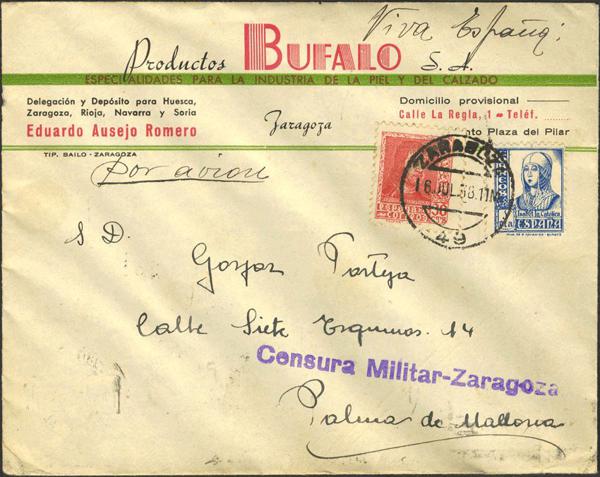 Viva España!
Productos BUFALO S. A.
ESPECIALIDADES PARA LA INDUSTRIA DE LA PIEL Y DEL CALZADO
Delegación y Depósito para Huesca,
Zaragoza, Rioja, Navarra y Soria
Eduardo Ausejo Romero
Zaragoza
Domicilio provisional
Calle La Regla, 1 - Teléf.
Plaza del Pilar
TIP. BAILO - ZARAGOZA
Por avion
16 JUL 38. 11M
49
CORREOS
Isabel la Católica
ESPAÑA
S D.
Gaspar
Calle Siete Esquinas 14
Censura Militar-Zaragoza
Palma de Mallorca